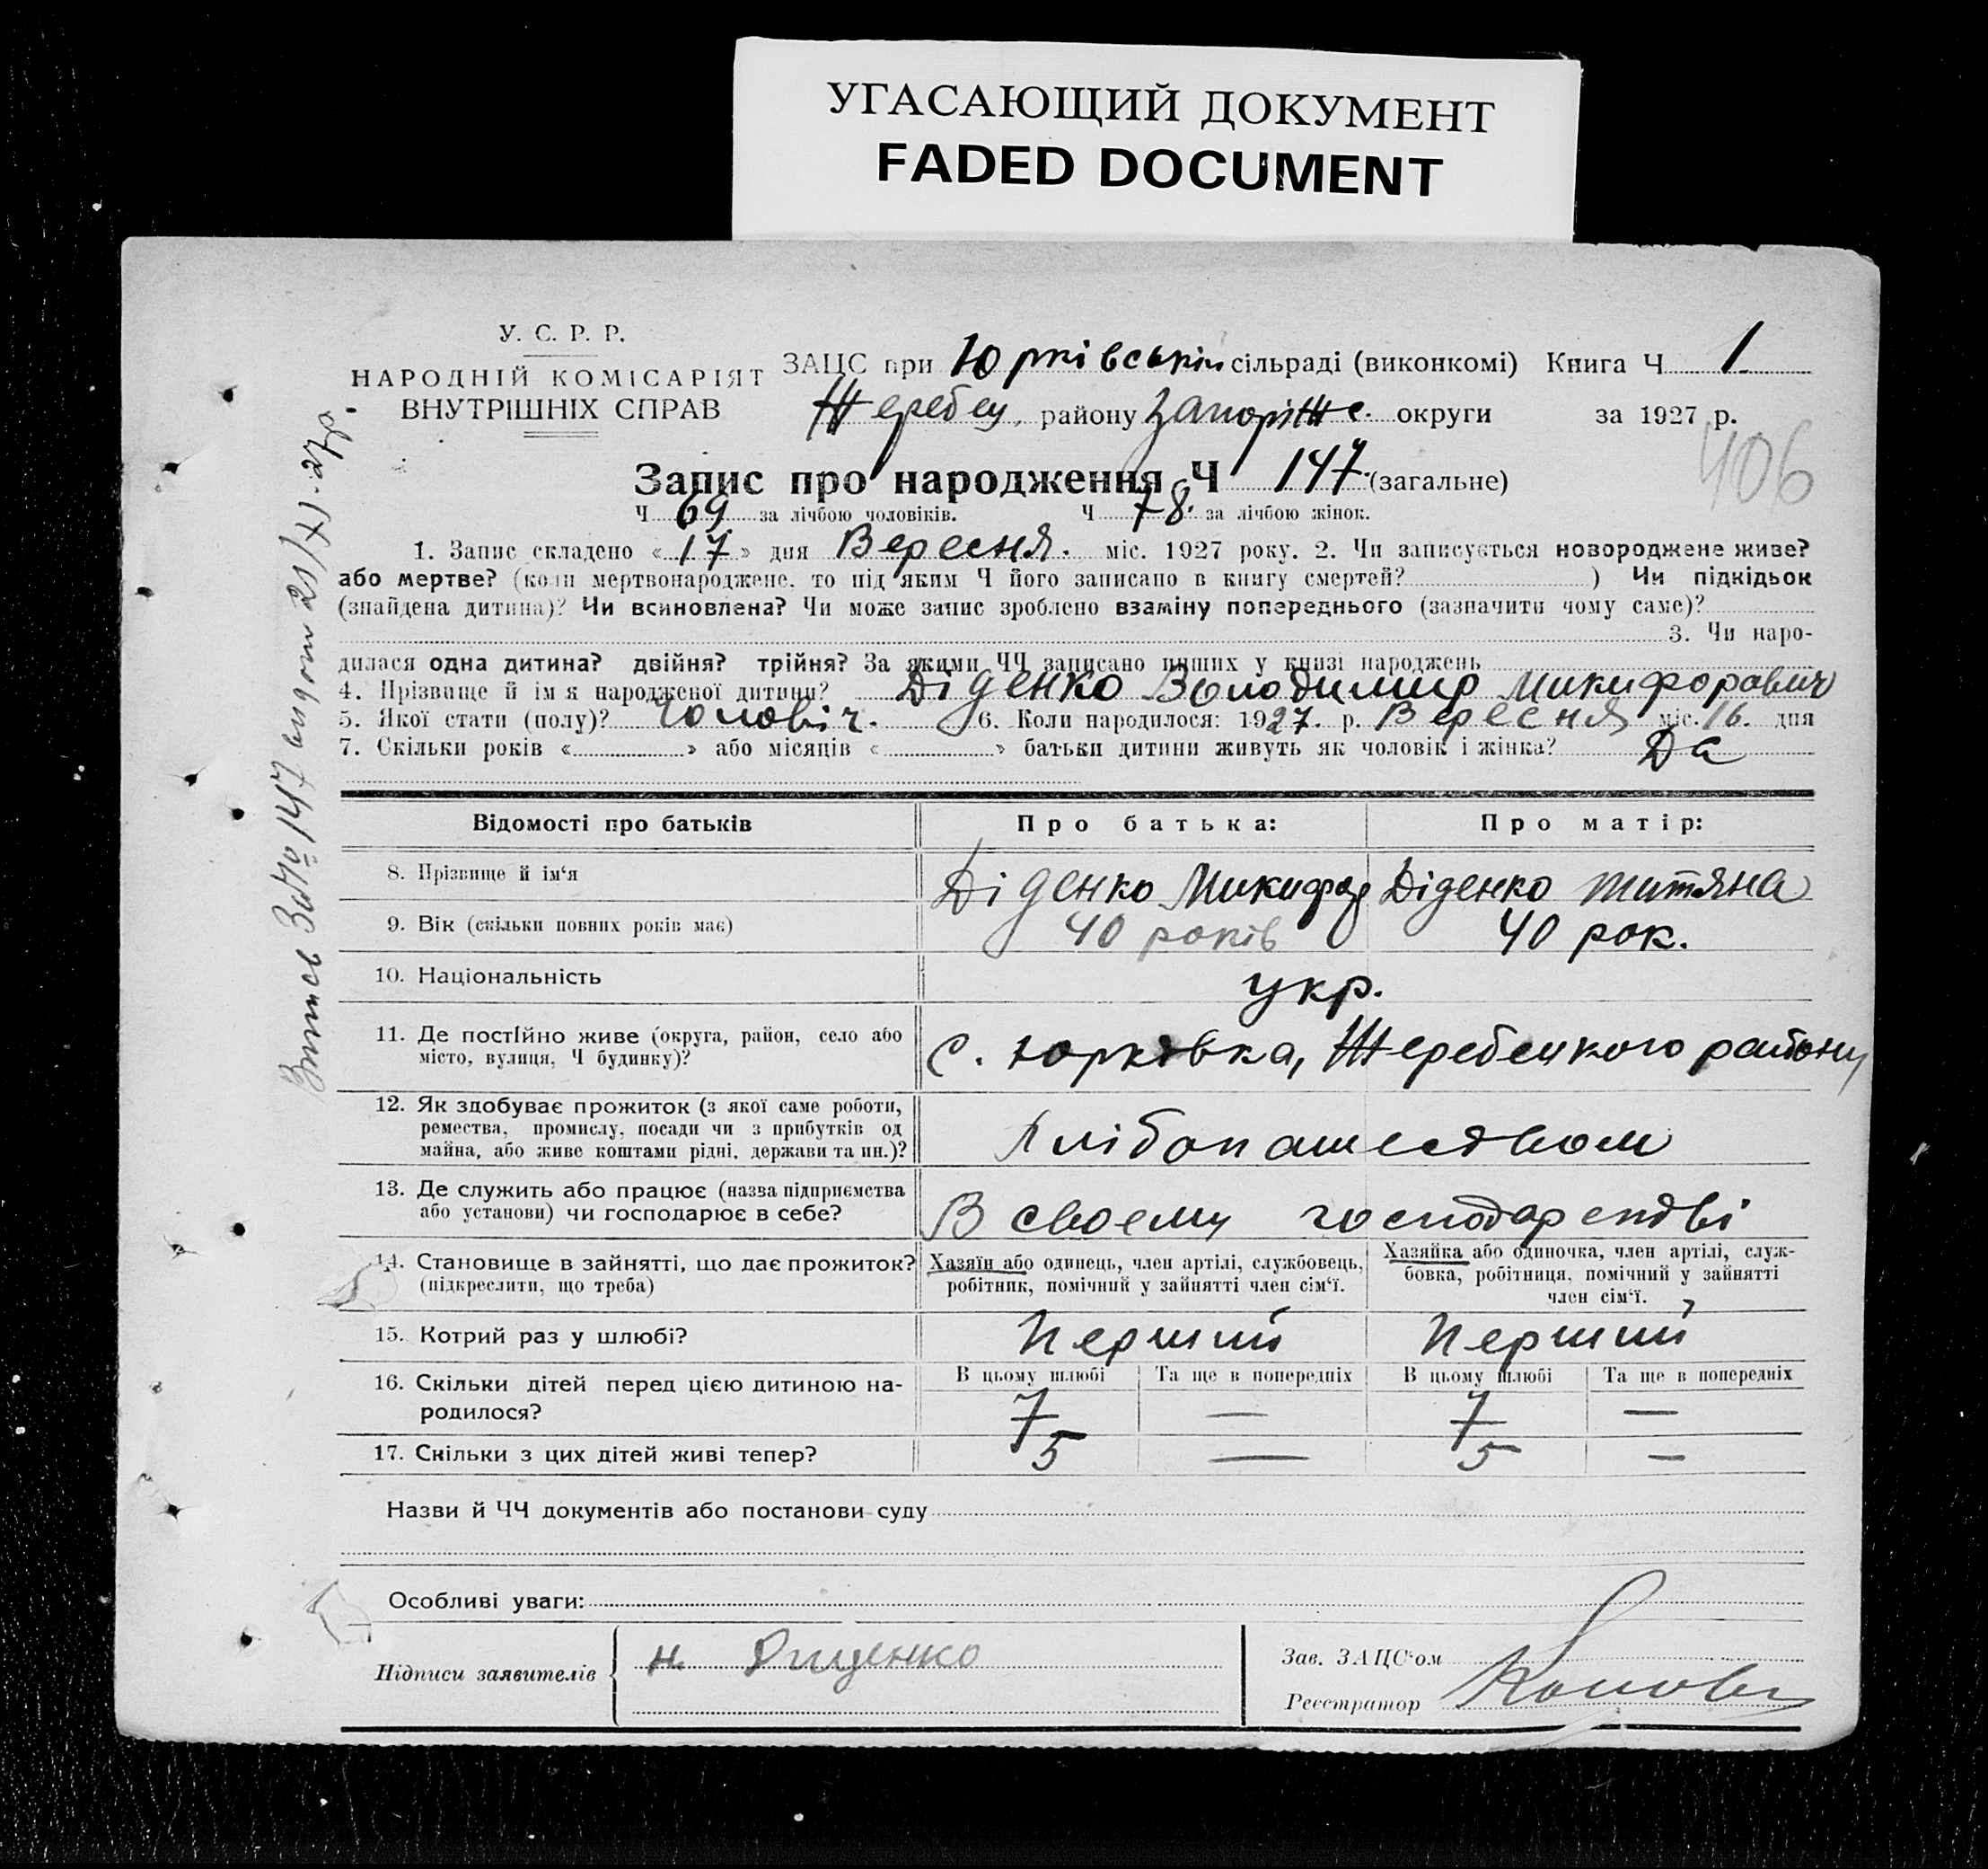 УГАСАЮЩИЙ ДОКУМЕНТ
FADED DOCUMENT
У. С. Р. Р.
НАРОДНІЙ КОМІСАРІЯТ
ВНУТРІШНІХ СПРАВ
ЗАЦС при Юрківській сільраді (виконкомі) Книга Ч 1.
Жеребец. району Запоріж. округи за 1927 р.
406
Запис про народження Ч 147 (загальне)
Ч 69 за лічбою чоловіків. Ч 78. за лічбою жінок.
1. Запис складено «17» дня Вересня. міс. 1927 року. 2. Чи записується новороджене живе?
або мертве? (коли мертвонароджене, то під яким Ч його записано в книгу смертей? ) Чи підкідьок
(знайдена дитина)? Чи всиновлена? Чи може запис зроблено взаміну попереднього (зазначити чому саме)?
3. Чи наро-
дилася одна дитина? двійня? трійня? За якими ЧЧ записано инших у книзі народжень
4. Прізвище й ім'я народженої дитини? Діденко Володимир Микифорович
5. Якої стати (полу)? Чоловіч. 6. Коли народилося: 1927. р. Вересня міс. 16. дня
7. Скільки років « » або місяців « » батьки дитини живуть як чоловік і жінка? Да
Відомості про батьків Про батька: Про матір:
8. Прізвище й ім‘я Діденко Микифор Діденко Титяна
9. Вік (скільки повних років має) 40 років 40 рок.
10. Національність укр.
11. Де постійно живе (округа, район, село або
місто, вулиця, Ч будинку)? с. Юрківка, Жеребецкого району
12. Як здобуває прожиток (з якої саме роботи,
ремества, промислу, посади чи з прибутків од
майна, або живе коштами рідні, держави та ин.)? Хлібопашеством
13. Де служить або працює (назва підприємства
або установи) чи господарює в себе? В своему господарстві
14. Становище в зайнятті, що дає прожиток?
(підкреслити, що треба)
Хазяїн або одинець, член артілі, службовець,
робітник, помічний у зайнятті член сім‘ї.
Хазяйка або одиночка, член артілі, служ-
бовка, робітниця, помічний у зайнятті
член сім‘ї.
15. Котрий раз у шлюбі? Перший Перший
В цьому шлюбі Та ще в попередніх В цьому шлюбі Та ще в попередніх
16. Скільки дітей перед цією дитиною на-
родилося? 7 — 7 —
17. Скільки з цих дітей живі тепер? 5 — 5 —
Назви й ЧЧ документів або постанови суду
Особливі уваги:
Підписи заявителів
Зав. ЗАЦС‘ом
Реєстратор